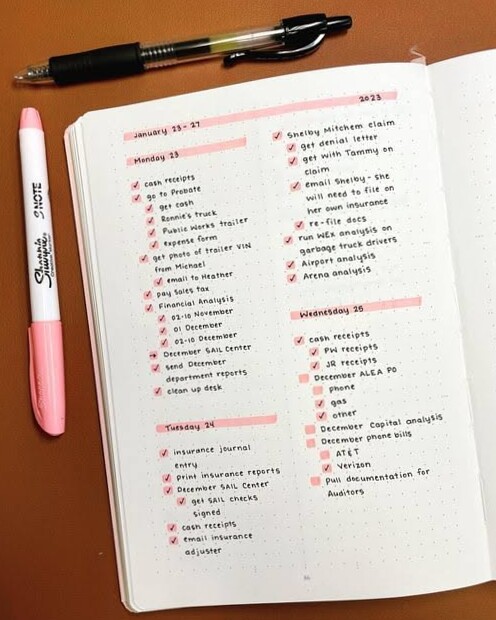 January 23-27
2023
Monday 23
✓ cash receipts
✓ go to Probate
✓ get cash
✓ Ronnie's truck
✓ Public Works trailer
✓ expense form
✓ get photo of trailer VIN
from Michael
✓ email to Heather
✓ pay sales tax
✓ Financial Analysis
✓ 02-10 November
✓ 01 December
✓ 02-10 December
→ December SAIL Center
✓ send December
department reports
✓ clean up desk
Tuesday 24
✓ insurance journal
entry
✓ print insurance reports
✓ December SAIL Center
✓ get SAIL checks
signed
✓ cash receipts
✓ email insurance
adjuster
✓ Shelby Mitchem claim
✓ get denial letter
✓ get with Tammy on
claim
✓ email Shelby - she
will need to file on
her own insurance
✓ re-file docs
✓ run WEX analysis on
garbage truck drivers
✓ Airport analysis
✓ Arena analysis
Wednesday 25
✓ cash receipts
✓ PW receipts
✓ JR receipts
December ALEA PO
phone
✓ gas
✓ other
December Capital analysis
December phone bills
AT&T
✓ Verizon
pull documentation for
Auditors
Sharpie
S NOTE